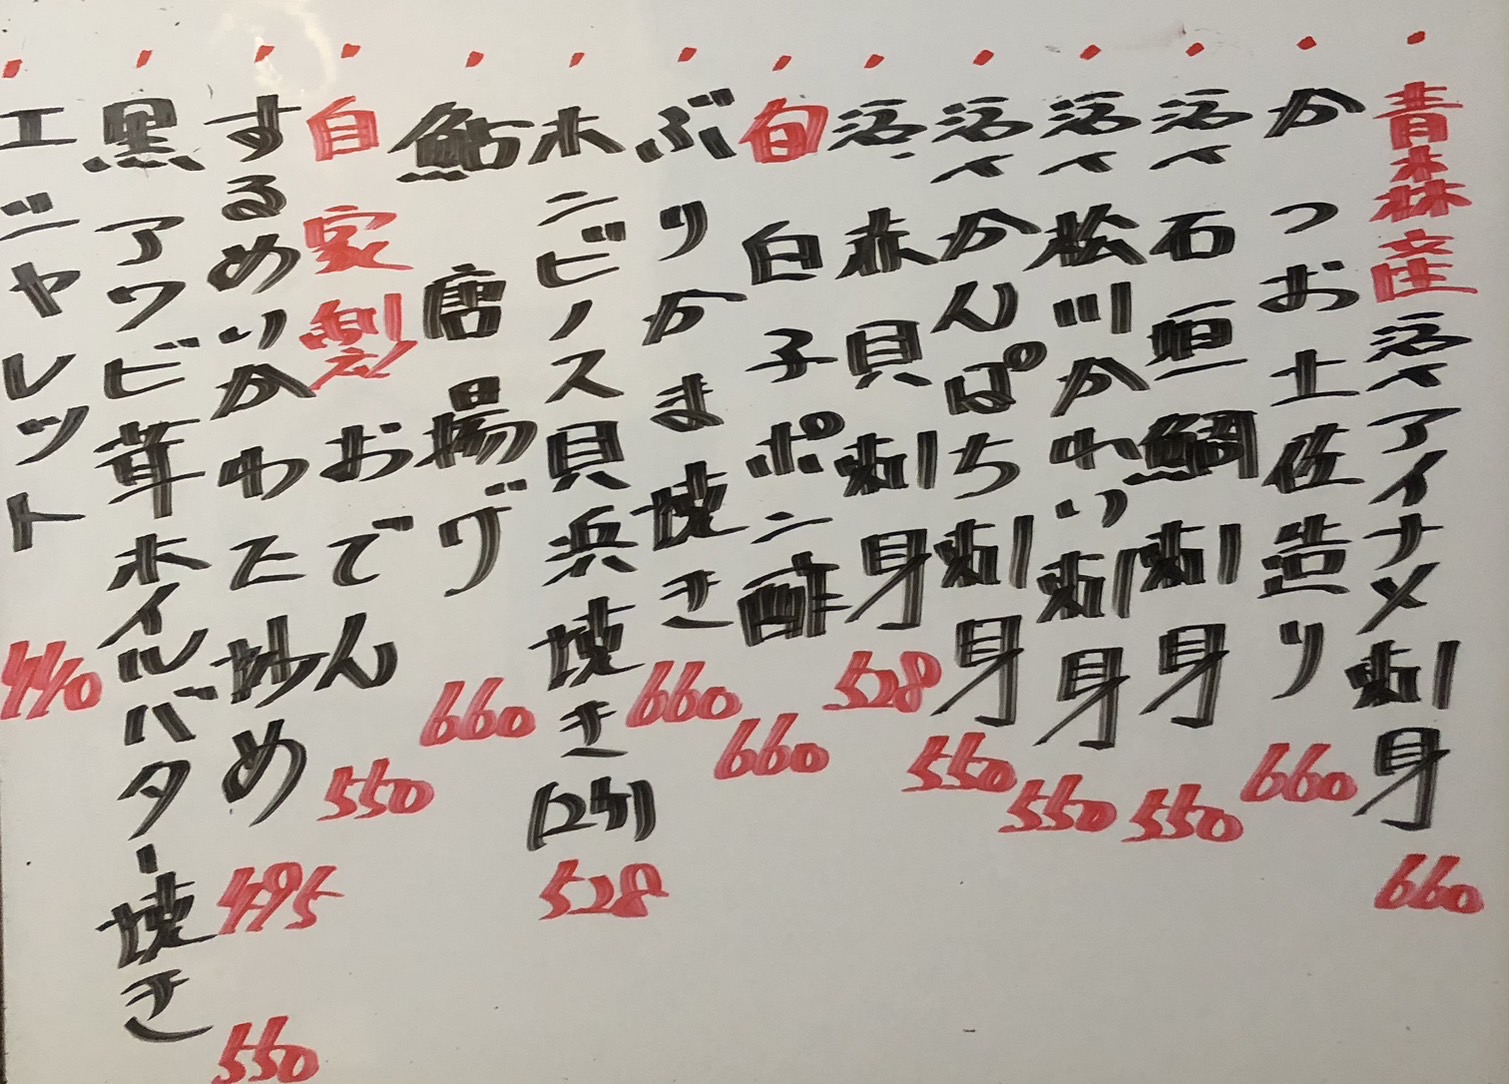 青森産 活〆アイナメ刺身 660
かつお土佐造り 660
活〆石垣鯛刺身 550
活〆松川かれい刺身 550
活〆かんぱち刺身 550
活赤貝刺身 528
旬 白子ポン酢 660
ぶりかま焼き 660
ホンビノス貝浜焼き(2ケ) 528
鮎唐揚げ 660
自家製おでん 550
するめいかわた炒め 495
黒アワビ茸ホイルバター焼き 550
エシャレット 440